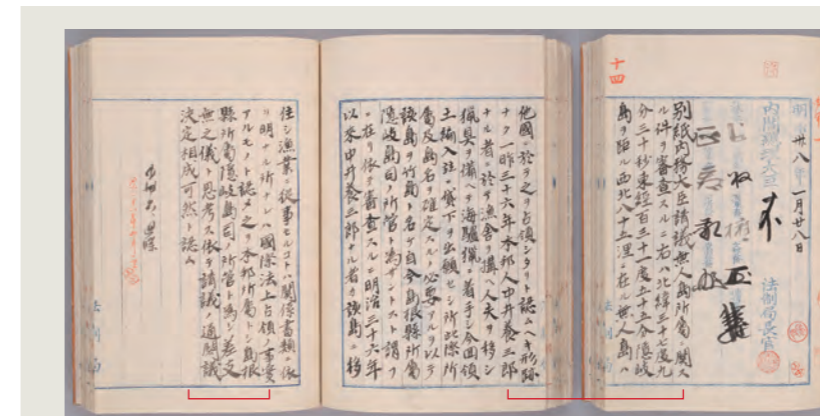 十四
明治卅八年一月廿八日
内閣総理大臣
法制局長官
別紙内務大臣請議無人島所属ニ関ス
ル件ヲ審査スルニ右ハ北緯三十七度九
分三十秒東経百三十一度五十五分隠岐
島ヲ距ル西北八十五浬ニ在ル無人島ハ
他國ニ於テ之ヲ占領シタリト認ムヘキ形跡
ナク一昨三十六年本邦人中井養三郎
ナル者ニ於テ漁舎ヲ構ヘ人夫ヲ移シ
猟具ヲ備ヘテ海驢猟ニ着手シ今回領
土編入並ニ貸下ヲ出願セシ所此際所
属及島名ヲ確定スルノ必要アルヲ以テ
該島ヲ竹島ト名ケ自今島根縣所属
隠岐島司ノ所管ト為サントスト謂フ
ニ在リ依テ審査スルニ明治三十六年
以来中井養三郎ナル者カ該島ニ移
住シ漁業ニ従事セルコトハ関係書類ニ依
リ明ナル所ナレハ國際法上占領ノ事実
アルモノト認メ之ヲ本邦所属トシ島根
縣所属隠岐島司ノ所管ト為シ差支
無之儀ト思考ス依テ請議ノ通閣議
決定相成可然ト認ム
法制局
法制局